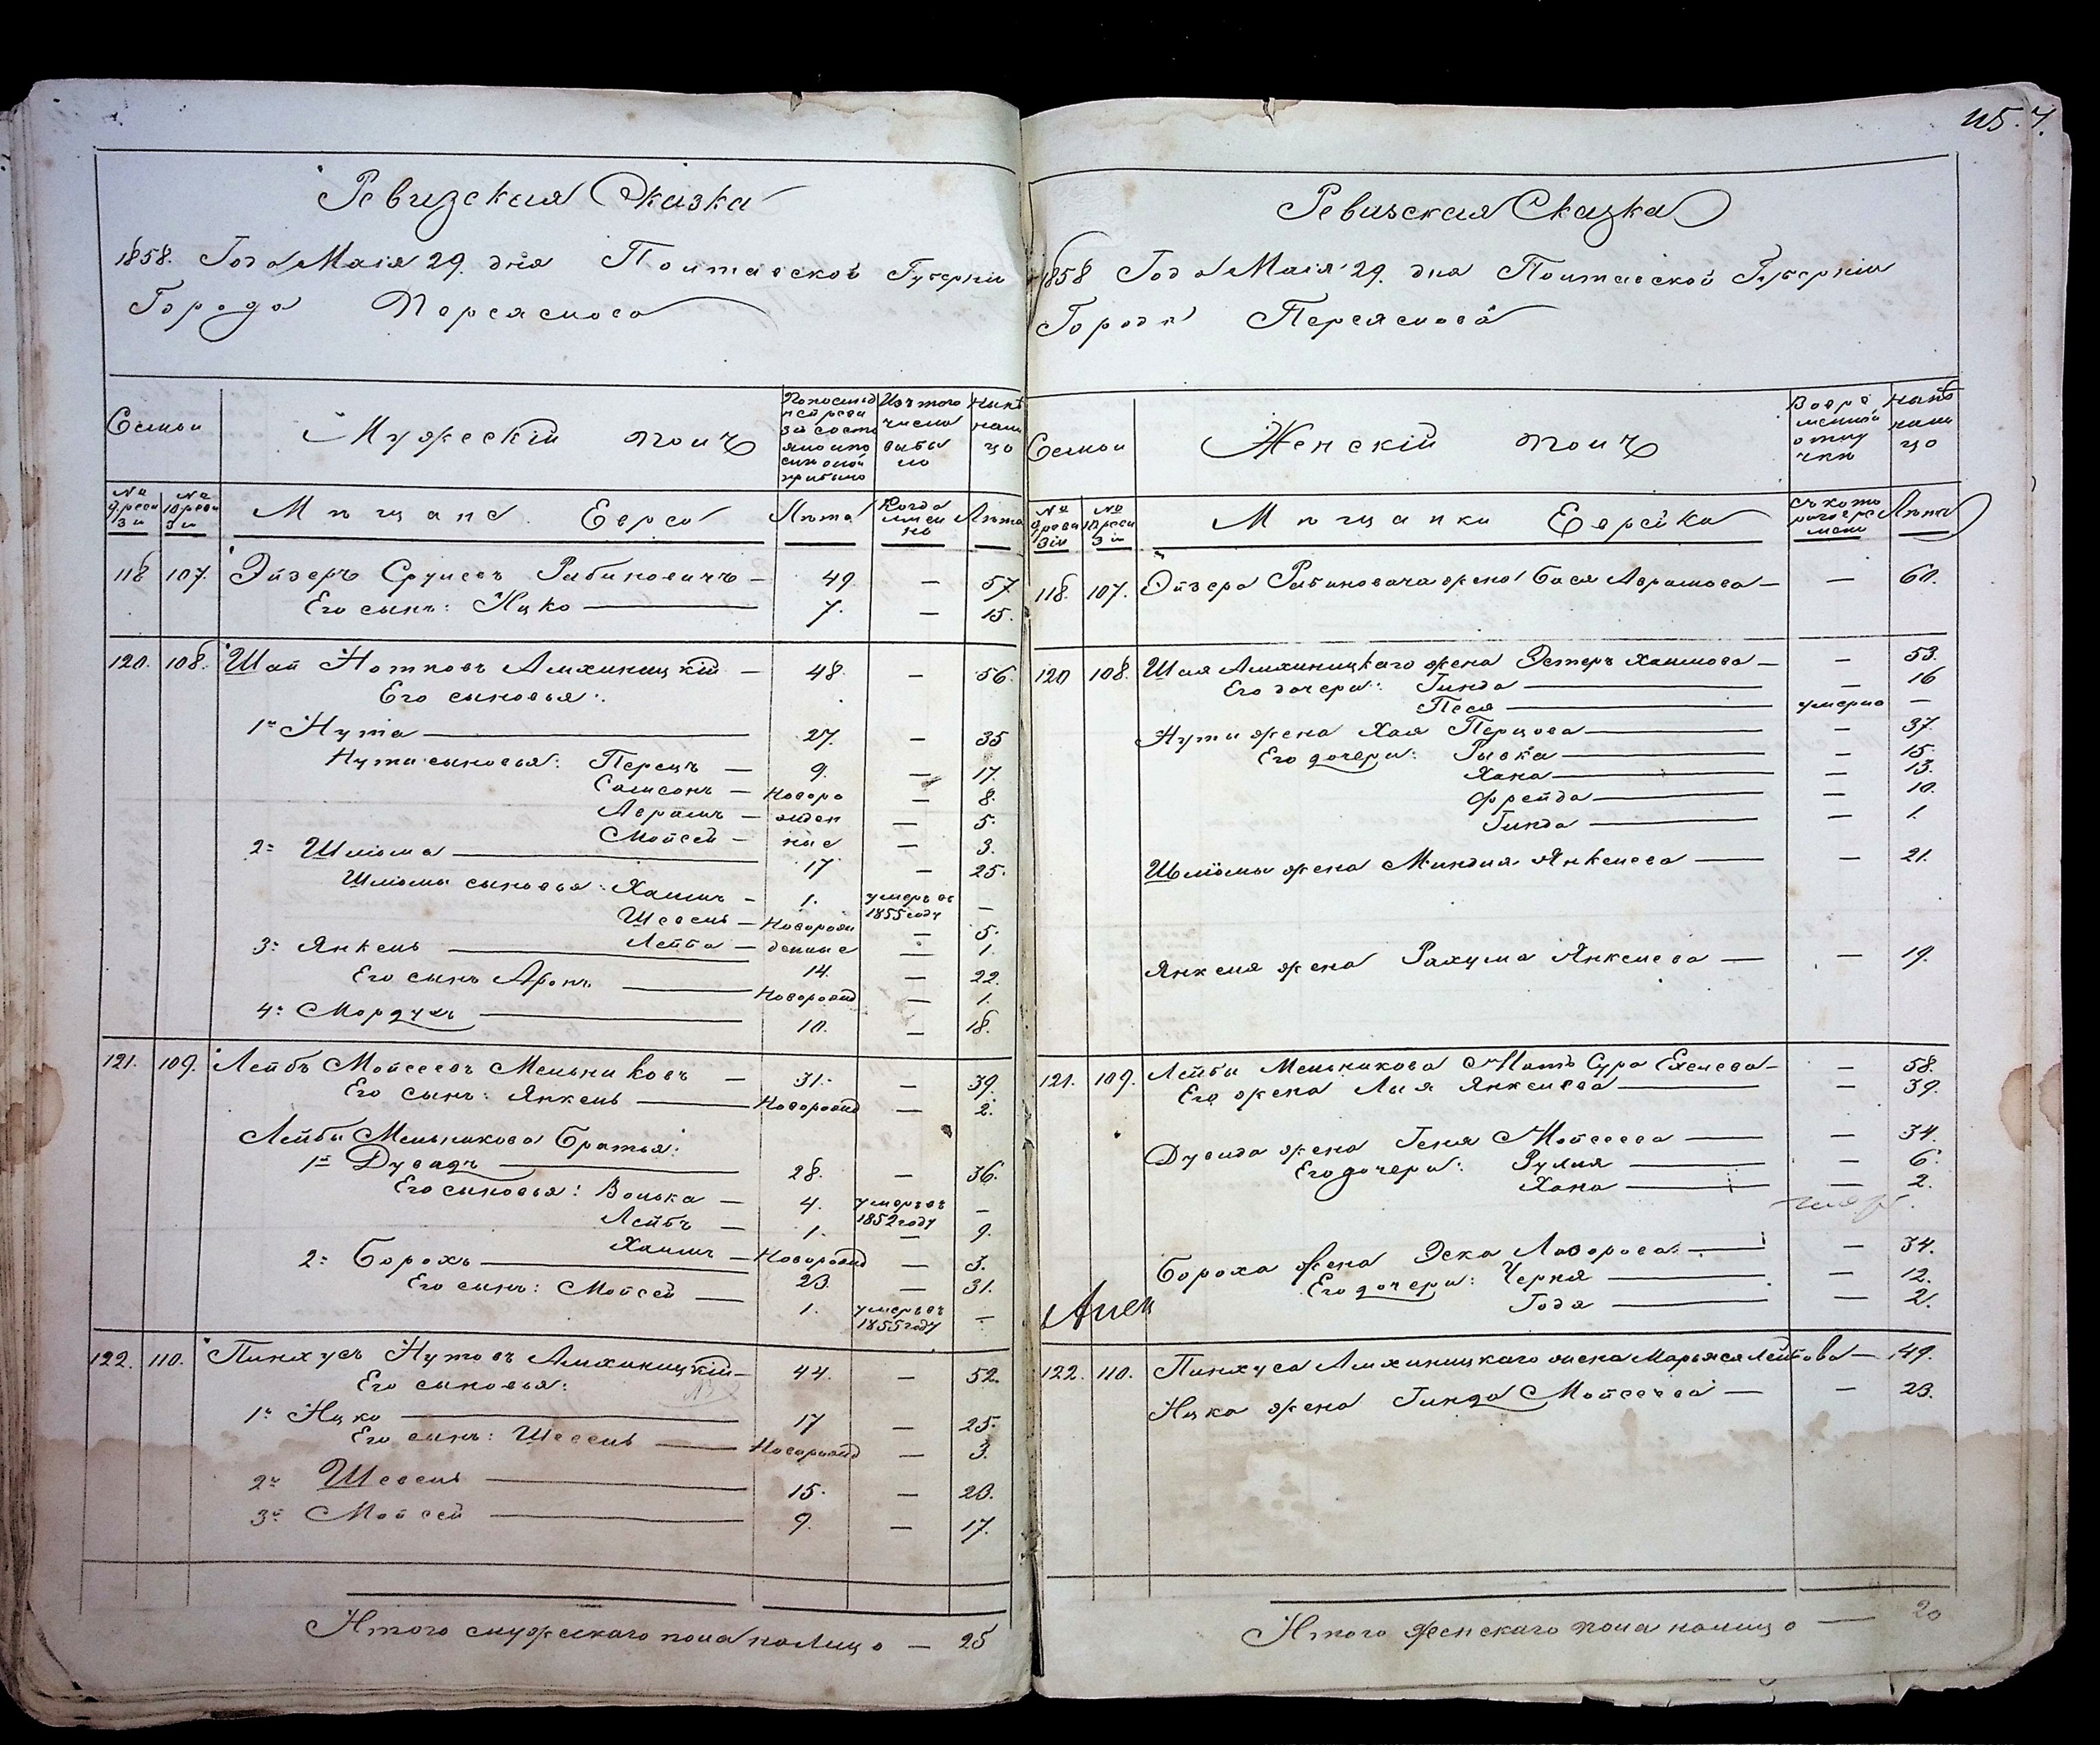 Ревизская Сказка
1858. Года Маія 29. дня Полтавской Губерніи
Города Переяслова
Семьи
Мужескій полъ
По последней ревизіи состояло и после оной прибыло
Изъ того числа выбыло
Ныне на лицо
№ 9 ревизіи
№ 10 ревизіи
Мещане Евреи
Лета
Когда именно
Лета
118 107. Эйзеръ Сруліовъ Рабиновичъ — 49. — 57
Его сынъ: Ицко — 7. — 15.
120. 108. Шая Нотковъ Алихиницкій — 48. — 56.
Его сыновья:
1й Нута — 27. — 35
Нуты сыновья: Перецъ — 9. — 17.
Самсонъ — Новоро — 8.
Аврамъ — жден — 5.
Мойсей — ные — 3.
2й Шліома — 17 — 25.
Шліомы сыновья: Хаимъ — 1. умеръ въ 1855 году —
Шевель — Новорож — 5.
Лейба — денные — 1.
3й Янкель — 14. — 22.
Его сынъ Аронъ — Новорожд — 1.
4й Мордухъ — 10. — 18.
121. 109. Лейбъ Мойсеевъ Мельниковъ — 31. — 39.
Его сынъ: Янкель — Новорожд — 2.
Лейбы Мельникова братья:
1й Дувидъ — 28. — 36.
Его сыновья: Волька — 4. умеръ въ 1852 году —
Лейбъ — 1. — 9.
Хаимъ — Новорожд — 3.
2й Борохъ — 23. — 31.
Его сынъ: Мойсей — 1. умеръ въ 1855 году —
122. 110. Пинхусъ Нутовъ Алихиницкій — 44. — 52.
Его сыновья:
1й Ицко — 17 — 25.
Его сынъ: Шевель — Новорожд — 3.
2й Шевель — 15. — 23.
3й Мойсей — 9. — 17.
Итого мужескаго пола налицо — 25
Ревизская Сказка
1858 Года Маія 29. дня Полтавской Губерніи
Города Переяслова
Семьи
Женскій полъ
Во временной отлучке
Ныне на лицо
№ 9 ревизіи
№ 10 ревизіи
Мещанки Еврейки
Съ котораго времени
Лета
118. 107. Эйзера Рабиновича жена Бася Аврамова — — 60.
120 108. Шая Алихиницкаго жена Эстеръ Хаимова — — 53.
Его дочери: Гинда — — 16
Песя — умерла —
Нуты жена Хая Перцова — — 37.
Его дочери: Рывка — — 15.
Хана — — 13.
Фрейда — — 10.
Гинда — — 1.
Шьліомы жена Миндля Янкелева — — 21.
Янкеля жена Рахума Янкелева — — 19.
121. 109. Лейбы Мельникова Мать Сура — 58.
Его жена Лыя Янкелева — — 39.
Дувида жена Геня Мойсеева — — 34.
Его дочери: Зулия — — 6.
Хана — — 2.
Бороха жена Эска Лазорова — — 34.
Его дочери: Черня — — 12.
Года — — 2.
122. 110. Пинхуса Алихиницкаго жена Марьяся Лейбова — 49.
Ицка жена Гинда Мойсеева — — 23.
Итого женскаго пола налицо — 20